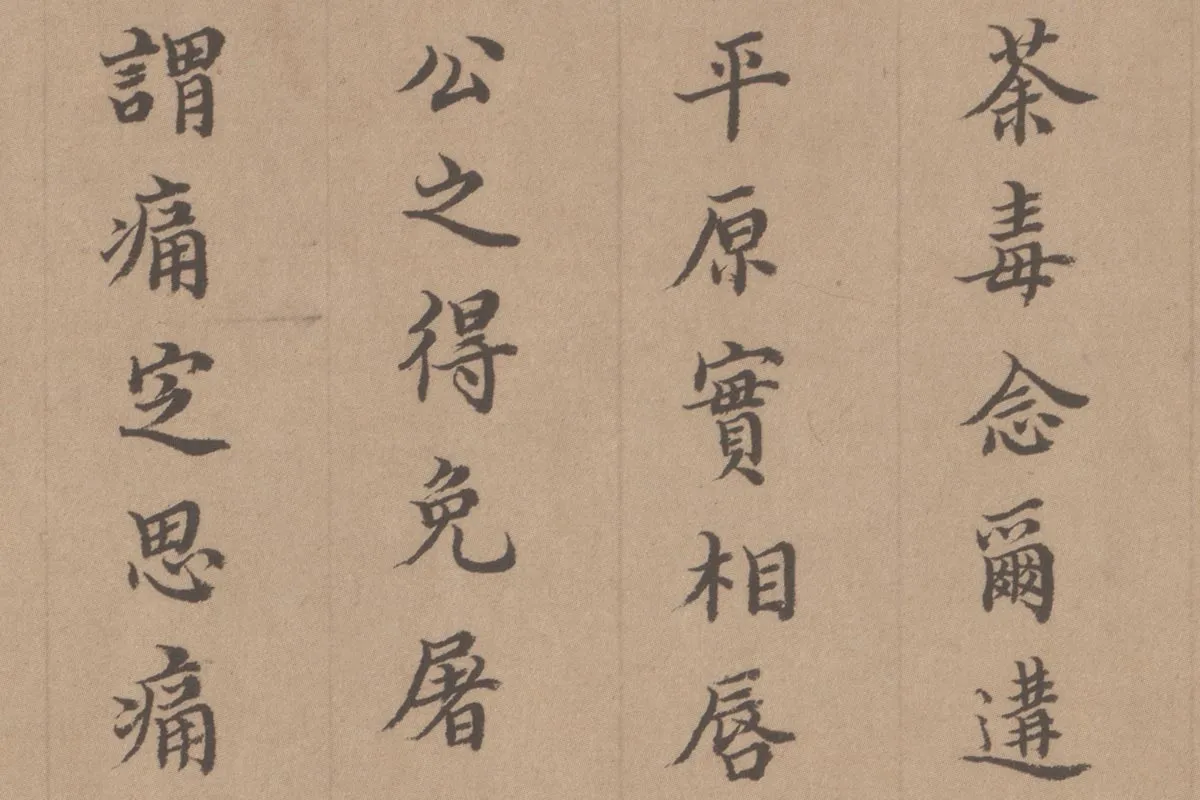 荼毒念爾遘
平原實相脣
公之得免屠
謂痛定思痛